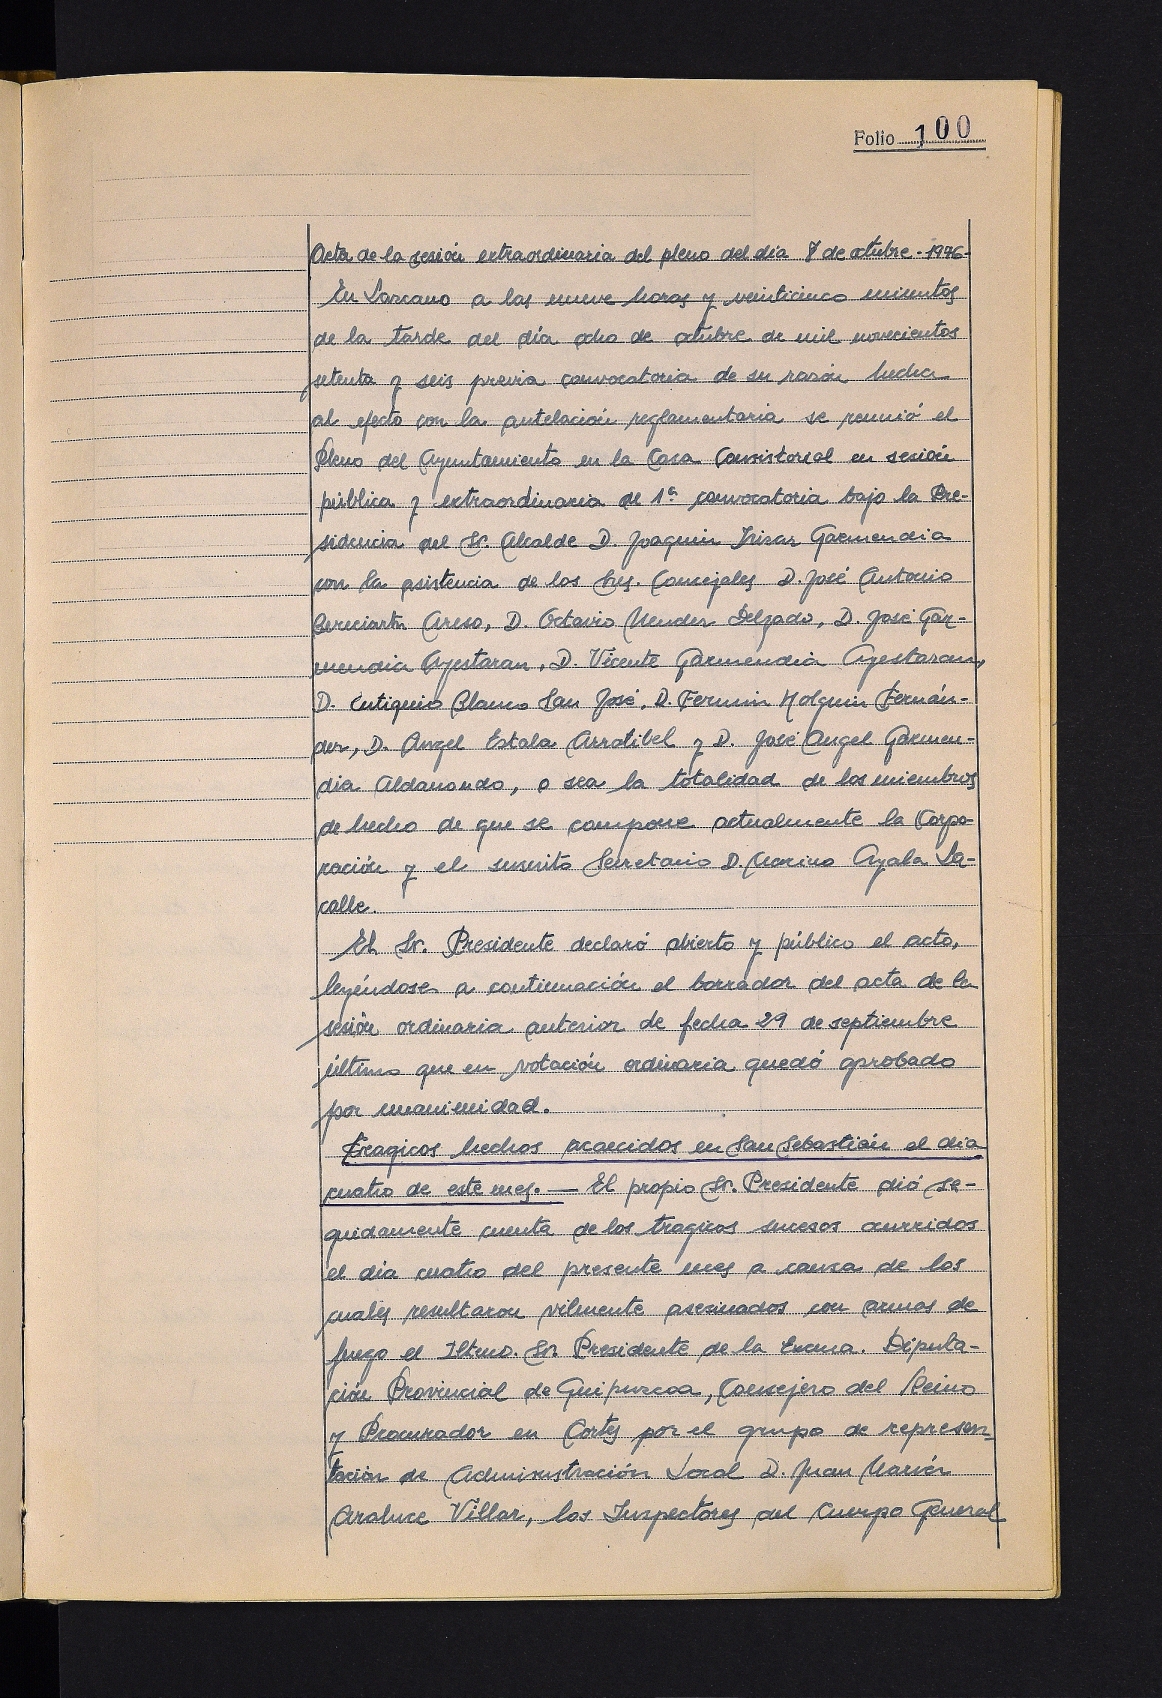 Folio 100
Acta de la sesión extraordinaria del pleno del dia 8 de octubre - 1976-
En Lazcano a las nueve horas y veinticinco minutos
de la tarde del día ocho de octubre de mil novecientos
setenta y seis previa convocatoria de su razón hecha
al efecto con la antelación reglamentaria se reunió el
Pleno del Ayuntamiento en la Casa Consistorial en sesión
pública y extraordinaria de 1ª convocatoria bajo la Pre-
sidencia del Sr. Alcalde D. Joaquin Irizar Garmendia
con la asistencia de los Sres. Concejales D. José Antonio
Bereciartu Areso, D. Octavio Mendez Delgado, D. José Gar-
mendia Ayestaran, D. Vicente Garmendia Ayestaran,
D. Eutiquio Blanco San José, D. Fermin Holguin Fernán-
dez, D. Angel Estala Arratibel y D. José Angel Garmen-
dia Aldanondo, o sea la totalidad de los miembros
de hecho de que se compone actualmente la Corpo-
ración y el suscrito Secretario D. Marino Ayala La-
calle.
El Sr. Presidente declaró abierto y público el acto,
leyéndose a continuación el borrador del acta de la
sesión ordinaria anterior de fecha 29 de septiembre
último que en votación ordinaria quedó aprobado
por unanimidad.
Tragicos hechos acaecidos en San Sebastián el dia
cuatro de este mes. — El propio Sr. Presidente dió se-
guidamente cuenta de los tragicos sucesos ocurridos
el dia cuatro del presente mes a causa de los
cuales resultaron vilmente asesinados con armas de
fuego el Iltmo. Sr. Presidente de la Excma. Diputa-
ción Provincial de Guipuzcoa, Consejero del Reino
y Procurador en Cortes por el grupo de represen-
tación de Administración Local D. Juan María
Araluce Villar, los Inspectores del Cuerpo General